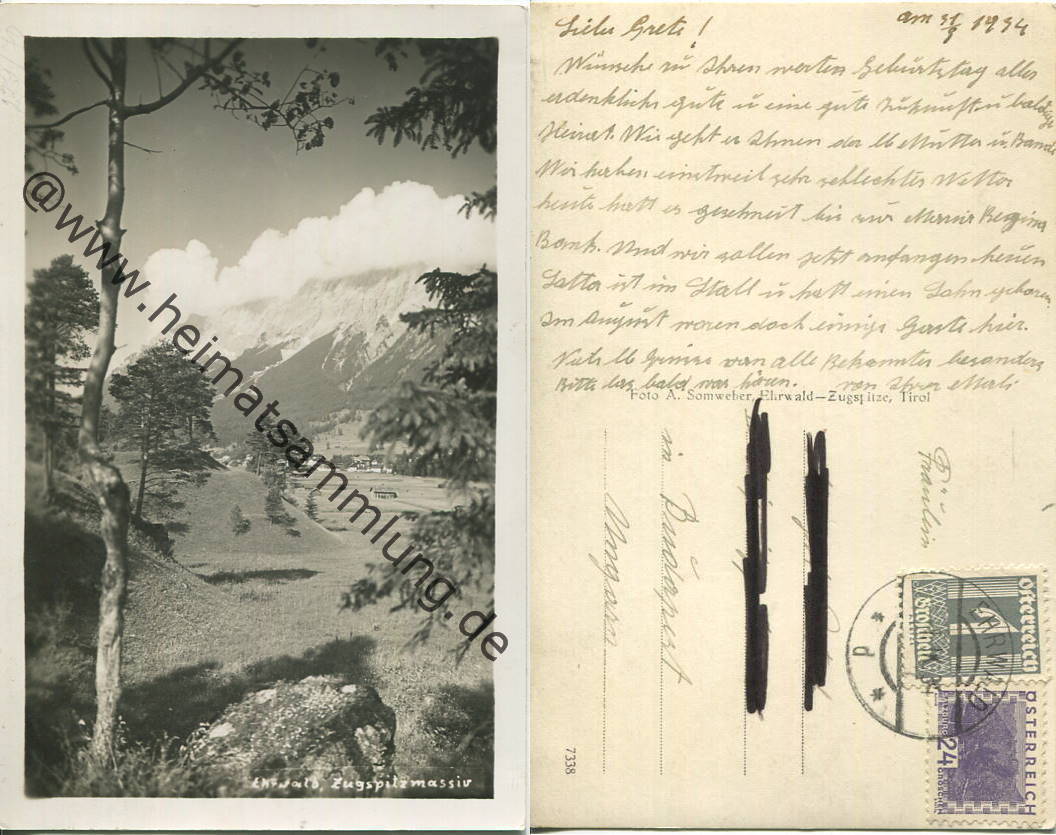 Ehrwald, Zugspitzmassiv
@www.heimatsammlung.de
Liebe Grete!
am 31/8 1934
Wünsche zu Ihren werten Geburtstag alles
erdenklich gute u eine gute Zukunft u bald
Heirat. Wie geht es Ihnen der lb Mutter u.
Wir haben einstweil sehr schlechtes Wetter
heute hatt es geschneit bis zur
Bank. Und wir sollen jetzt anfangen heuen
ist im Stall u hatt einen Sohn geboren
Im August waren doch einige Gäste hier.
Viele lb Grüsse von alle Bekannten besonders
Bitte las bald was hören. von Ihrer
Foto A. Somweber, Ehrwald—Zugspitze, Tirol
Fräulein
in Budapest
Ungarn
7338
EHRWALD
d
Österreich
1
Groschen
ÖSTERREICH
24
GROSCHEN